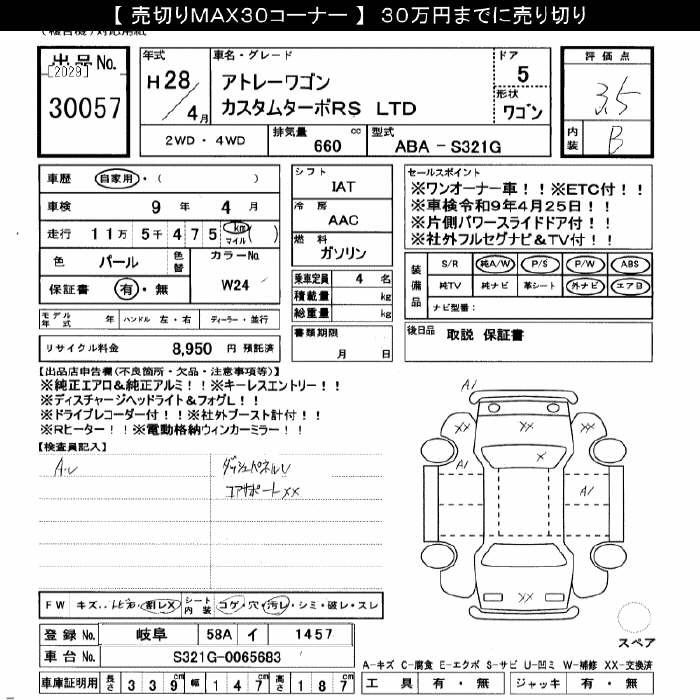 【 売切りMAX30コーナー 】 30万円までに売り切り
出品No.
[2029]
30057
年式
H28/4月
車名・グレード
アトレーワゴン
カスタムターボRS LTD
ドア
5
形状
ワゴン
評価点
3.5
内装
B
2WD・4WD
排気量
660 cc
型式
ABA-S321G
車歴 自家用・( )
車検 9年 4月
走行 11万 5千 475 (km マイル)
色 パール 色替
カラーNo.
W24
保証書 有・無
シフト
IAT
冷房
AAC
燃料
ガソリン
乗車定員 4 名
積載量 kg
総重量 kg
書類期限
月 日
セールスポイント
※ワンオーナー車!!※ETC付!!
※車検令和9年4月25日!!
※片側パワースライドドア付!!
※社外フルセグナビ&TV付!!
装備品
S/R 純A/W P/S P/W ABS
純TV 純ナビ 革シート 外ナビ エアB
ナビ型番:
モデル年式 年 ハンドル 左・右 ディーラー・並行
リサイクル料金 8,950 円 預託済
後日品 取説 保証書
【出品店申告欄(不良箇所・欠品・注意事項等)】
※純正エアロ&純正アルミ!!※キーレスエントリー!!
※ディスチャージヘッドライト&フォグL!!
※ドライブレコーダー付!!※社外ブースト計付!!
※Rヒーター!!※電動格納ウィンカーミラー!!
【検査員記入】
A・U
ダッシュパネルU
コアサポートXX
A1
XX XX XX
X
A1
A1
XX XX
FW キズ・トビ石・割レX シート内装 コゲ・穴・汚レ・シミ・破レ・スレ
スペア
登録No. 岐阜 58A イ 1457
車台No. S321G-0065683
A-キズ C-腐食 E-エクボ S-サビ U-凹ミ W-補修 XX-交換済
車庫証明用 長さ 339cm 幅 147cm 高さ 187cm
工具 有・無 ジャッキ 有・無